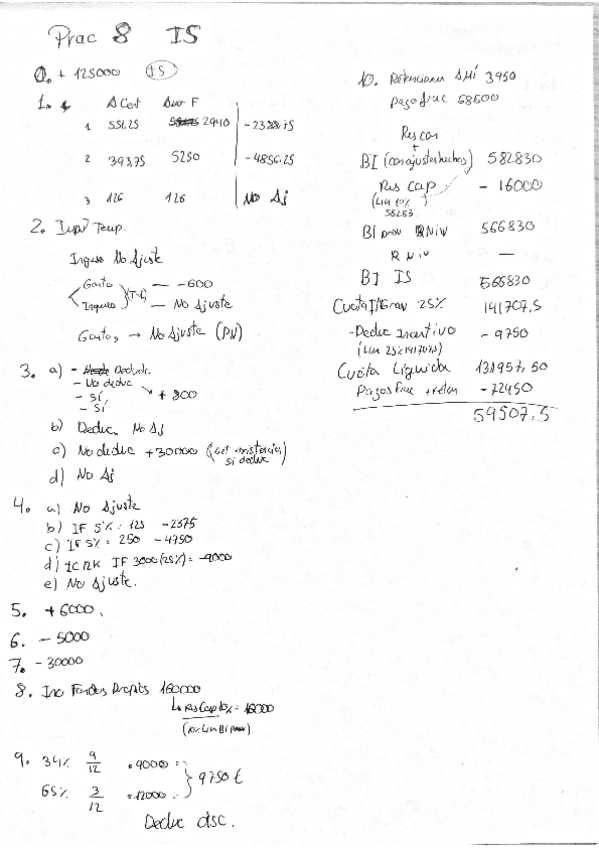 Prac 8 IS
0. + 125000 (IS)
1. A Cont Amor F
1 551.25 2940 -2388.75
2 393,75 5250 -4856.25
3 126 126 No Aj
2. Temp.
Ingreso No Ajuste
Gasto — -600
Ingreso — No Ajuste
Gastos → No Ajuste (PN)
3. a) - Deduc.
- No deduc
- Sí
- Sí
+ 800
b) Deduc. No Aj
c) No deduc +30000 ( existencias
si deduc)
d) No Aj
4. a) No Ajuste
b) IF 5% = 125 -2375
c) IF 5% = 250 -4750
d) IF 3000 (25%) = -9000
e) No Ajuste.
5. +6000.
6. - 5000
7. - 30000
8. Inc Fondos Propios 160000
Res Cap 10% = 16000
(10% Lim BI prev)
9. 34% 9/12 · 9000 =
65% 3/12 · 12000 =
9750 €
Deduc
10. Retenciones 3950
Pago frac 68500
Res Cap
+
BI (con ajustes hechos) 582830
Res Cap - 16000
(Lim 10%
58283
BI prev R Niv 566830
R Niv —
BI IS 566830
Cuota Int 25% 141707,5
- Deduc Incentivo - 9750
(Lim 25% 141707,5)
Cuota Líquida 131957,50
Pagos frac + reten - 72450
59507.5